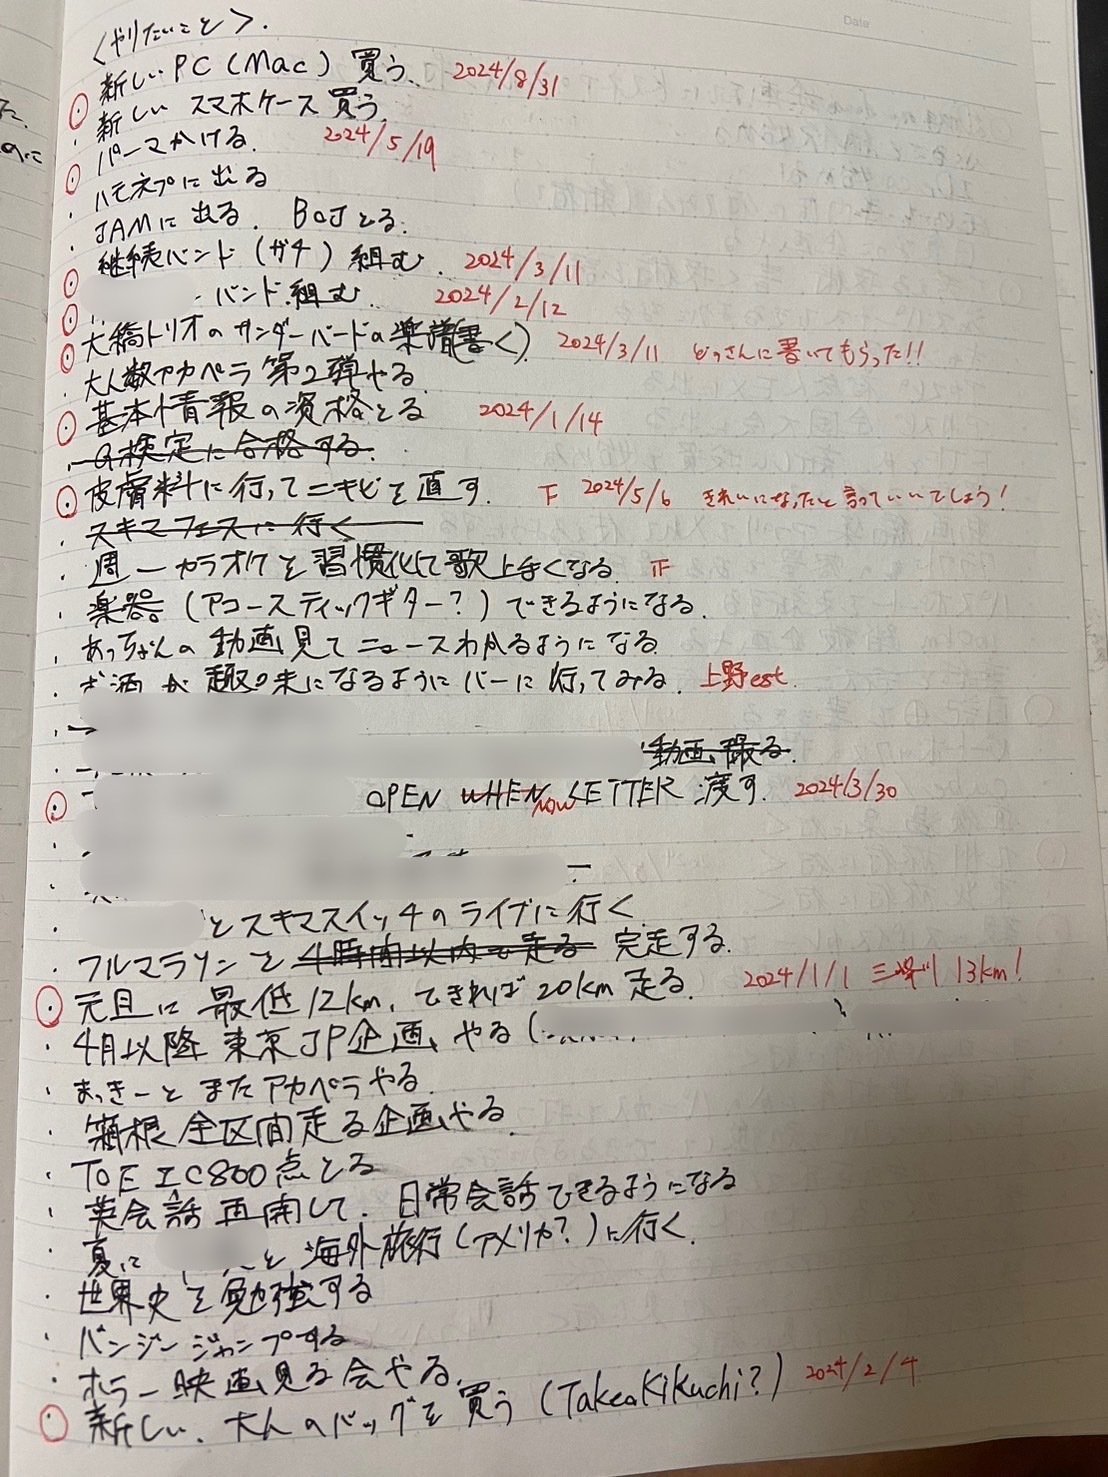 〈やりたいこと〉.
・新しいPC(Mac)買う. 2024/8/31
・新しい スマホケース買う.
・パーマかける. 2024/5/19
・ハモネプに出る
・JAMに出る. BOJとる.
・継続バンド(ガチ)組む. 2024/3/11
・バンド組む. 2024/2/12
・大橋トリオのサンダーバードの楽譜書く) 2024/3/11 どっさんに書いてもらった!!
・大人数アカペラ 第2弾やる.
・基本情報の資格とる 2024/1/14
・G検定に合格する.
・皮膚科に行ってニキビを直す. 下 2024/5/6 きれいになったと言っていいでしょう!
・スキマフェスに行く
・週一カラオケを習慣化して歌上手くなる. 正
・楽器(アコースティックギター?)できるようになる.
・あっちゃんの動画見てニュースわかるようになる
・お酒が趣味になるようにバーに行ってみる. 上野est.
動画撮る.
・OPEN WHEN NOW LETTER 渡す. 2024/3/30
・とスキマスイッチのライブに行く
・フルマラソンを4時間以内で走る 完走する.
・元旦に最低12km, できれば20km走る. 2024/1/1 13km!
・4月以降東京JP企画やる(
・まっきーとまたアカペラやる.
・箱根全区間走る企画やる.
・TOEIC800点とる
・英会話再開して, 日常会話できるようになる
・夏に と海外旅行(アメリカ?)に行く.
・世界史を勉強する
・バンジージャンプする
・ホラー映画見る会やる.
・新しい, 大人のバッグを買う(TakeoKikuchi?) 2024/2/4